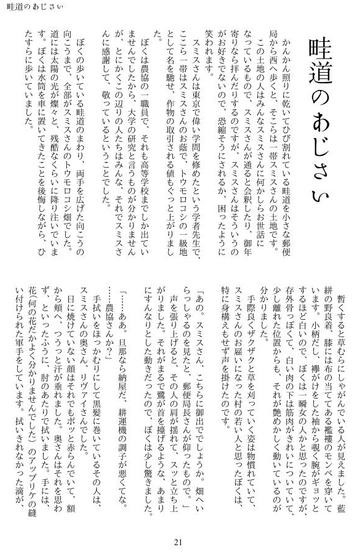 畦道のあじさい
畦道のあじさい
かんかん照りに乾いてひび割れている畦道を小さな郵便
局から西へ歩くと、そこらは一帯スミスさんの土地です。
この土地の人はみんなスミスさんに何かしらお世話に
なっているもので、スミスさんが通ると会釈したり、御年
寄りなら拝んだりするのですが、スミスさんはそういうの
がお好きでないので、恐縮そうにされるか、困ったように
笑われます。
スミスさんは東京で偉い学問を修めたという学者先生で、
ここら一帯はスミスさんのお蔭で、トウモロコシの一級地
として名を馳せ、作物の取引される値もぐっと上がりまし
た。
ぼくは農協の一職員で、それも高等学校までしか出てい
ませんでしたから、大学の研究と言うものが分かりません
が、とにかくこの辺りの人たちはみんな、それでスミスさ
んに感謝して、敬っているということでした。
ぼくの歩いている畦道のまわり、両手を広げた向こうの
向こうまで、全部がスミスさんのトウモロコシ畑でした。
道には太陽の光が燦々と、残酷なくらいに降り注いでいま
す。ぼくは水筒を車に置いてきたことを後悔しながら、ひ
たすらに歩いていました。
暫くすると草むらにしゃがんでいる人が見えました。藍
絣の野良着、膝には布の当ててある襤褸のモンペを穿いて
います。小柄だし、襷がけをした袖から覗く腕がギョッと
するほど白いので、ぼくは一瞬女の人かと思ったのですが、
存外骨っぽくて、白い肉の下は筋肉がきれいについていて、
少し離れた位置からも、それが艶めかしく動いているのが
分かりました。
手際良くザクザクと草を刈っていく姿は物慣れていて、
スミスさんのお雇いになった村の若い人と思ったぼくは、
特に身構えもせず声を掛けたのです。
「あの、スミスさん、こちらに御出ででしょうか。畑へい
らっしゃるのを見たと、郵便局長さんが仰ったもので。」
声を張り上げると、その人の肩が揺れて、スッと立ち上
がりました。それがまるで鷺が首を擡げるような、あまり
にすんなりとした動きだったので、ぼくは少し驚きました。
「……ああ、旦那なら納屋だ、耕運機の調子が悪くてな。
……農協さんか？」
手拭いをほっかむりにして黒髪に巻いているその人は、
スミスさんの奥さん、リヴァイさんでした。
日に焼けていない顔はそれでもポッと赤らんでいて、額
から頬へ、つうっと汗が垂れました。奥さんはそれを思わ
ず、といったふうに、肘のあたりで拭いました。手には、
花（何の花だかよく分かりませんでした）のアップリケの縫
い付けられた軍手をしています。拭いきれなかった滴が、
21